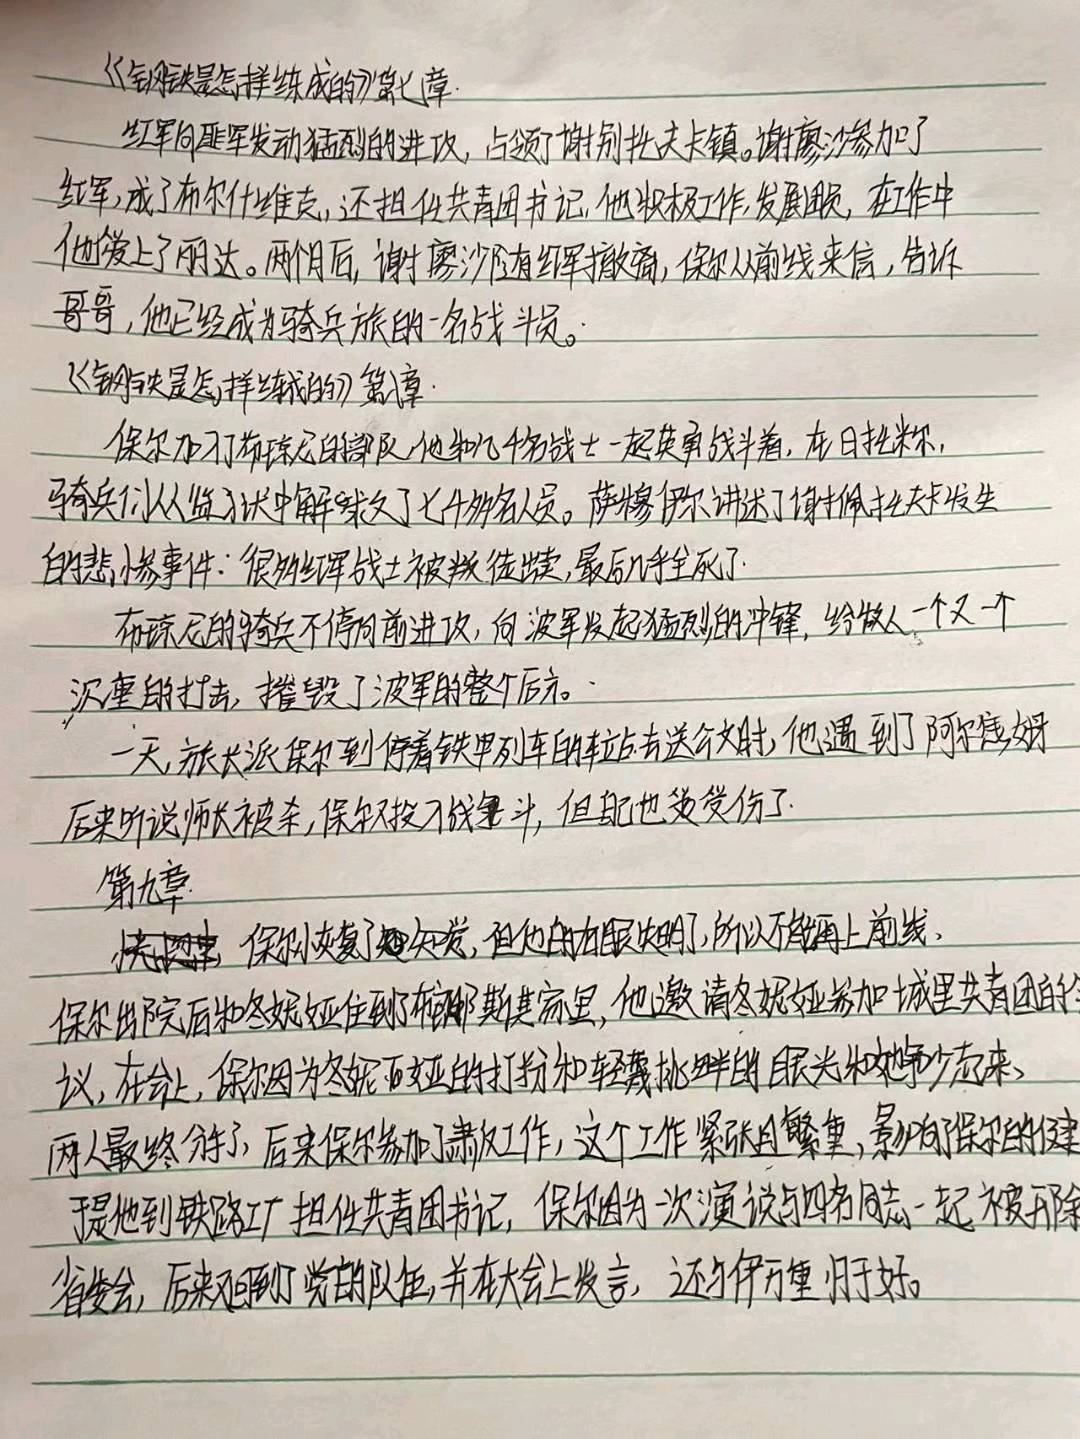 《钢铁是怎样练成的》第七章.
红军向匪军发动猛烈的进攻，占领了谢别托夫卡镇。谢廖沙参加了
红军，成了布尔什维克，还担任共青团书记，他积极工作，发展团员，在工作中
他爱上了丽达。两个月后，谢廖沙随红军撤离，保尔从前线来信，告诉
哥哥，他已经成为骑兵旅的一名战斗员。
《钢铁是怎样练成的》第八章.
保尔加入了布琼尼的部队，他和几千名战士一起英勇战斗着，在日托米尔，
骑兵们从监狱中解救了七千多名人员。萨穆伊尔讲述了谢佩托夫卡发生
的悲惨事件：很多红军战士被叛徒出卖，最后几乎全死了.
布琼尼的骑兵不停向前进攻，向波军发起猛烈的冲锋，给敌人一个又一个
沉重的打击，摧毁了波军的整个后方。
一天，旅长派保尔到停着铁甲列车的车站去送公文时，他遇到了阿尔焦姆
后来听说师长被杀，保尔又投入战斗，但自己也受伤了.
第九章.
保尔恢复了知觉，但他的右眼失明了，所以不能再上前线、
保尔出院后和冬妮娅住到了布朗斯基家里，他邀请冬妮娅参加城里共青团的会
议，在会上，保尔因为冬妮娅的打扮和轻蔑挑衅的目光和她争吵起来、
两人最终分手了，后来保尔参加了肃反工作，这个工作紧张且繁重，影响了保尔的健
于是他到铁路工厂担任共青团书记，保尔因为一次演说与四名同志一起被开除
省委会，后来还回到了党的队伍，并在大会上发言，还与伊万重归于好。